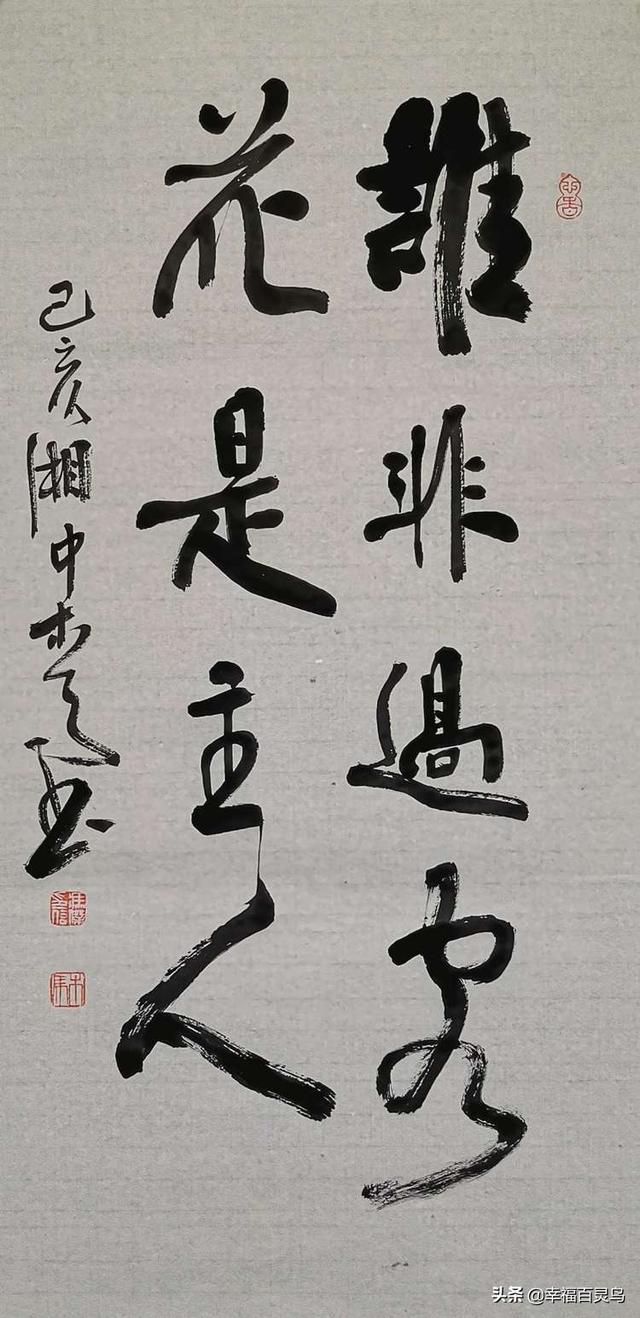 誰非過客
花是主人
己亥湘中木
头条 @幸福百灵鸟